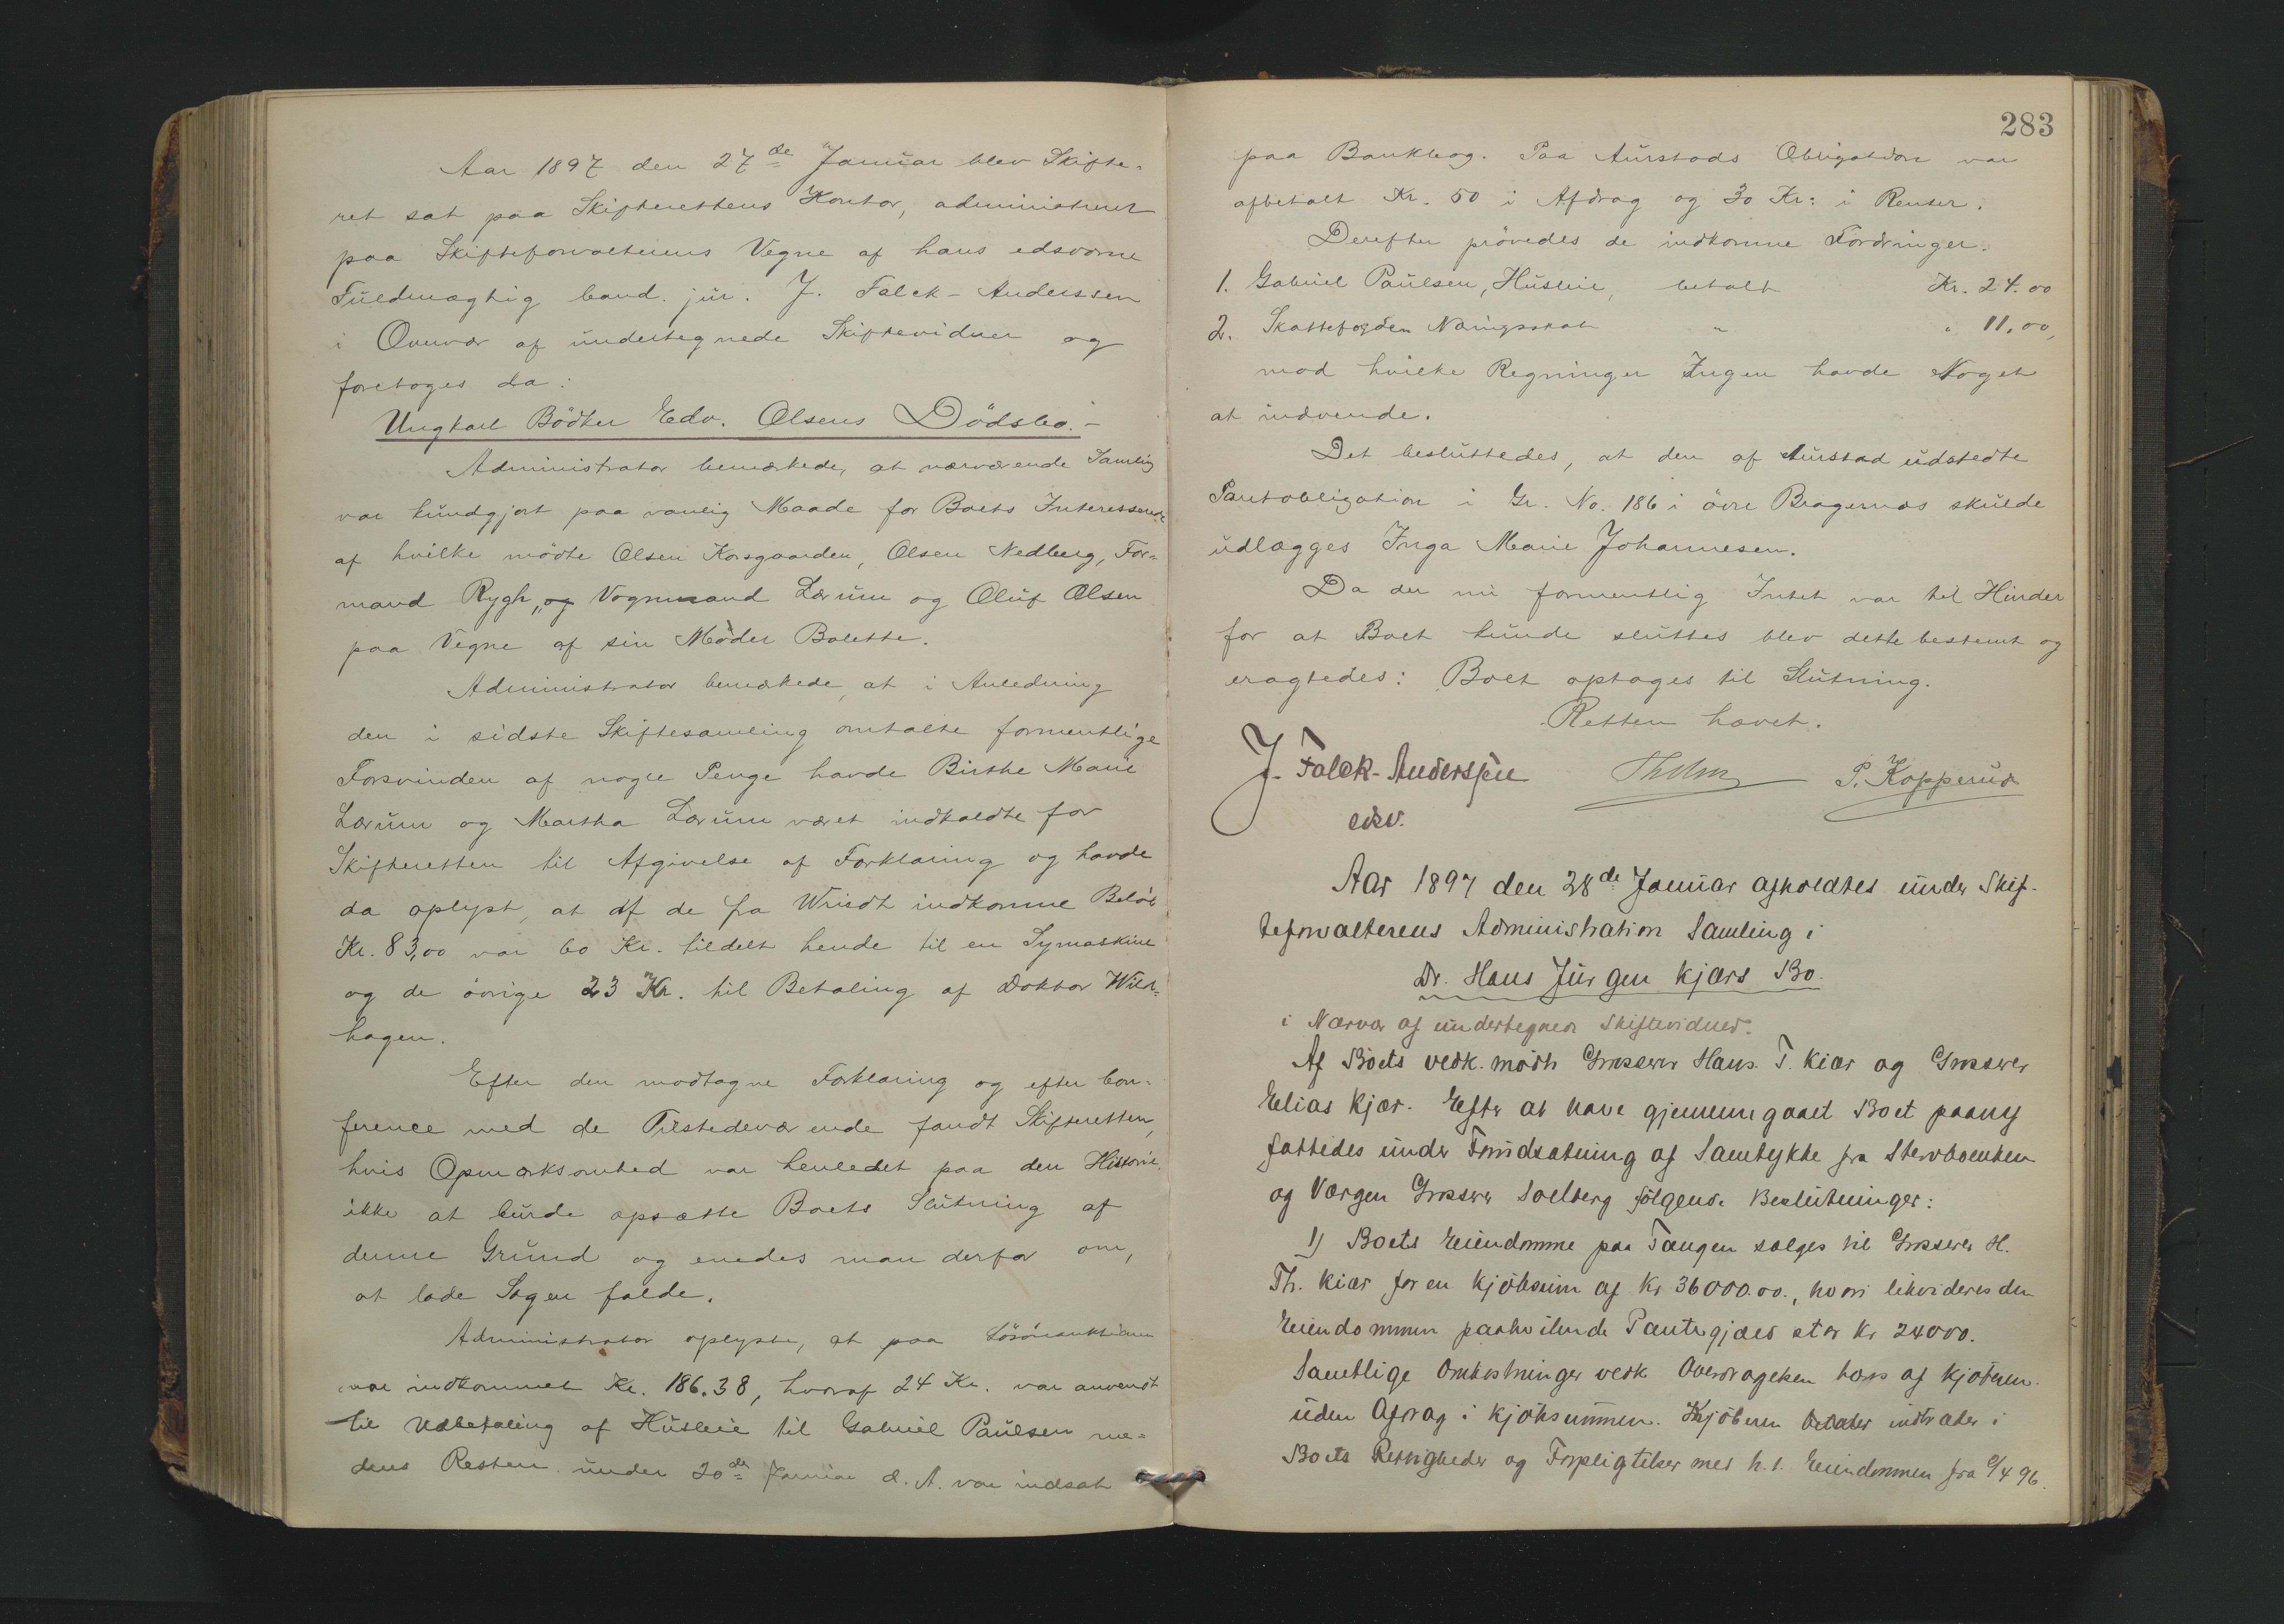 Aar 1897 den 27de Januar blev Skifte-
ret sat paa Skifterettens Kontor, administreret
paa Skifteforvalterens Vegne af hans edsvorne
Fuldmægtig cand. jur. J. Falck-Anderssen
i Overvær af undertegnede Skiftevidner og
foretoges da:
Ungkarl Bödker Edv. Olsens Dödsbo.-
Administrator bemærkede, at nærværende Samling
var kundgjort paa vanlig Maade for Boets Interesserede
af hvilke mödte Olsen Korsgaarden, Olsen Nedberg, For-
mand Rygh, og Vognmand Lærum og Oluf Olsen
paa Vegne af sin Moder Bolette.
Administrator bemærkede, at i Anledning
den i sidste Skiftesamling omtalte formentlige
Forsvinden af nogle Penge havde Birthe Marie
Lærum og Martha Lærum været indkaldte for
Skifteretten til Afgivelse af Forklaring og havde
da oplyst, at af de fra Wriedt indkomne Belöb
Kr. 83,00 var 60 Kr. tildelt hende til en Symaskine
og de övrige 23 Kr. til Betaling af Doktor
hagen.
Efter den modtagne Forklaring og efter Con-
ference med de Tilstedeværende fandt Skifteretten,
hvis Opmærksomhed var henledet paa den Historie,
ikke at burde opsætte Boets Slutning af
denne Grund og enedes man derfor om,
at lade Sagen falde.
Administrator oplyste, at paa Lösöreauktionen
var indkommet Kr. 186.38, hvoraf 24 Kr. var anvendt
til Udbetaling af Husleie til Gabriel Paulsen me-
dens Resten under 20de Januar d. A. var indsat
283
paa Bankbog. Paa Aurstads Obligation var
afbetalt Kr. 50 i Afdrag og 30 Kr: i Renter.
Derefter prövedes de indkomne Fordringer.
1. Gabriel Paulsen, Husleie, betalt Kr. 24.00
2. Skattefogden Næringsskat " " 11.00,
mod hvilke Regninger Ingen havde Noget
at indvende.
Det besluttedes, at den af Aurstad udstedte
Pantobligation i Gr. No. 186 i övre Bragernæs skulde
udlægges Inga Marie Johannesen.
Da der nu formentlig Intet var til Hinder
for at Boet kunde sluttes blev dette bestemt og
eragtedes: Boet optages til Slutning.
Retten hævet.
J. Falck-Anderssen P. Kopperud
edsv.
Aar 1897 den 28de Januar afholdtes under Skif-
teforvalterens Administration Samling i
Dr. Hans Jürgen Kjærs Bo.
i Nærvær af undertegnede Skiftevidner.
Af Boets vedk. mödte Grosserer Hans T. Kiær og Grosserer
Elias Kjær. Efter at have gjennemgaaet Boet paany
fattedes under Forudsætning af Samtykke fra Stervboenken
og Værgen Grosserer Solberg fölgende Beslutninger:
1) Boets Eiendomme paa Tangen sælges til Grosserer H.
Th. Kiær for en Kjöbesum af Kr 36000.00., hvori likvideres den
Eiendommen paahvilende Pantegjæld stor Kr 24000.
Samtlige Omkostninger vedk Overdragelsen bæres af Kjöberen
uden Afdrag i Kjöbsummen. Kjöberen indtræder i
Boets Rettigheder og Forpligtelser med h. t. Eiendommen fra 96.